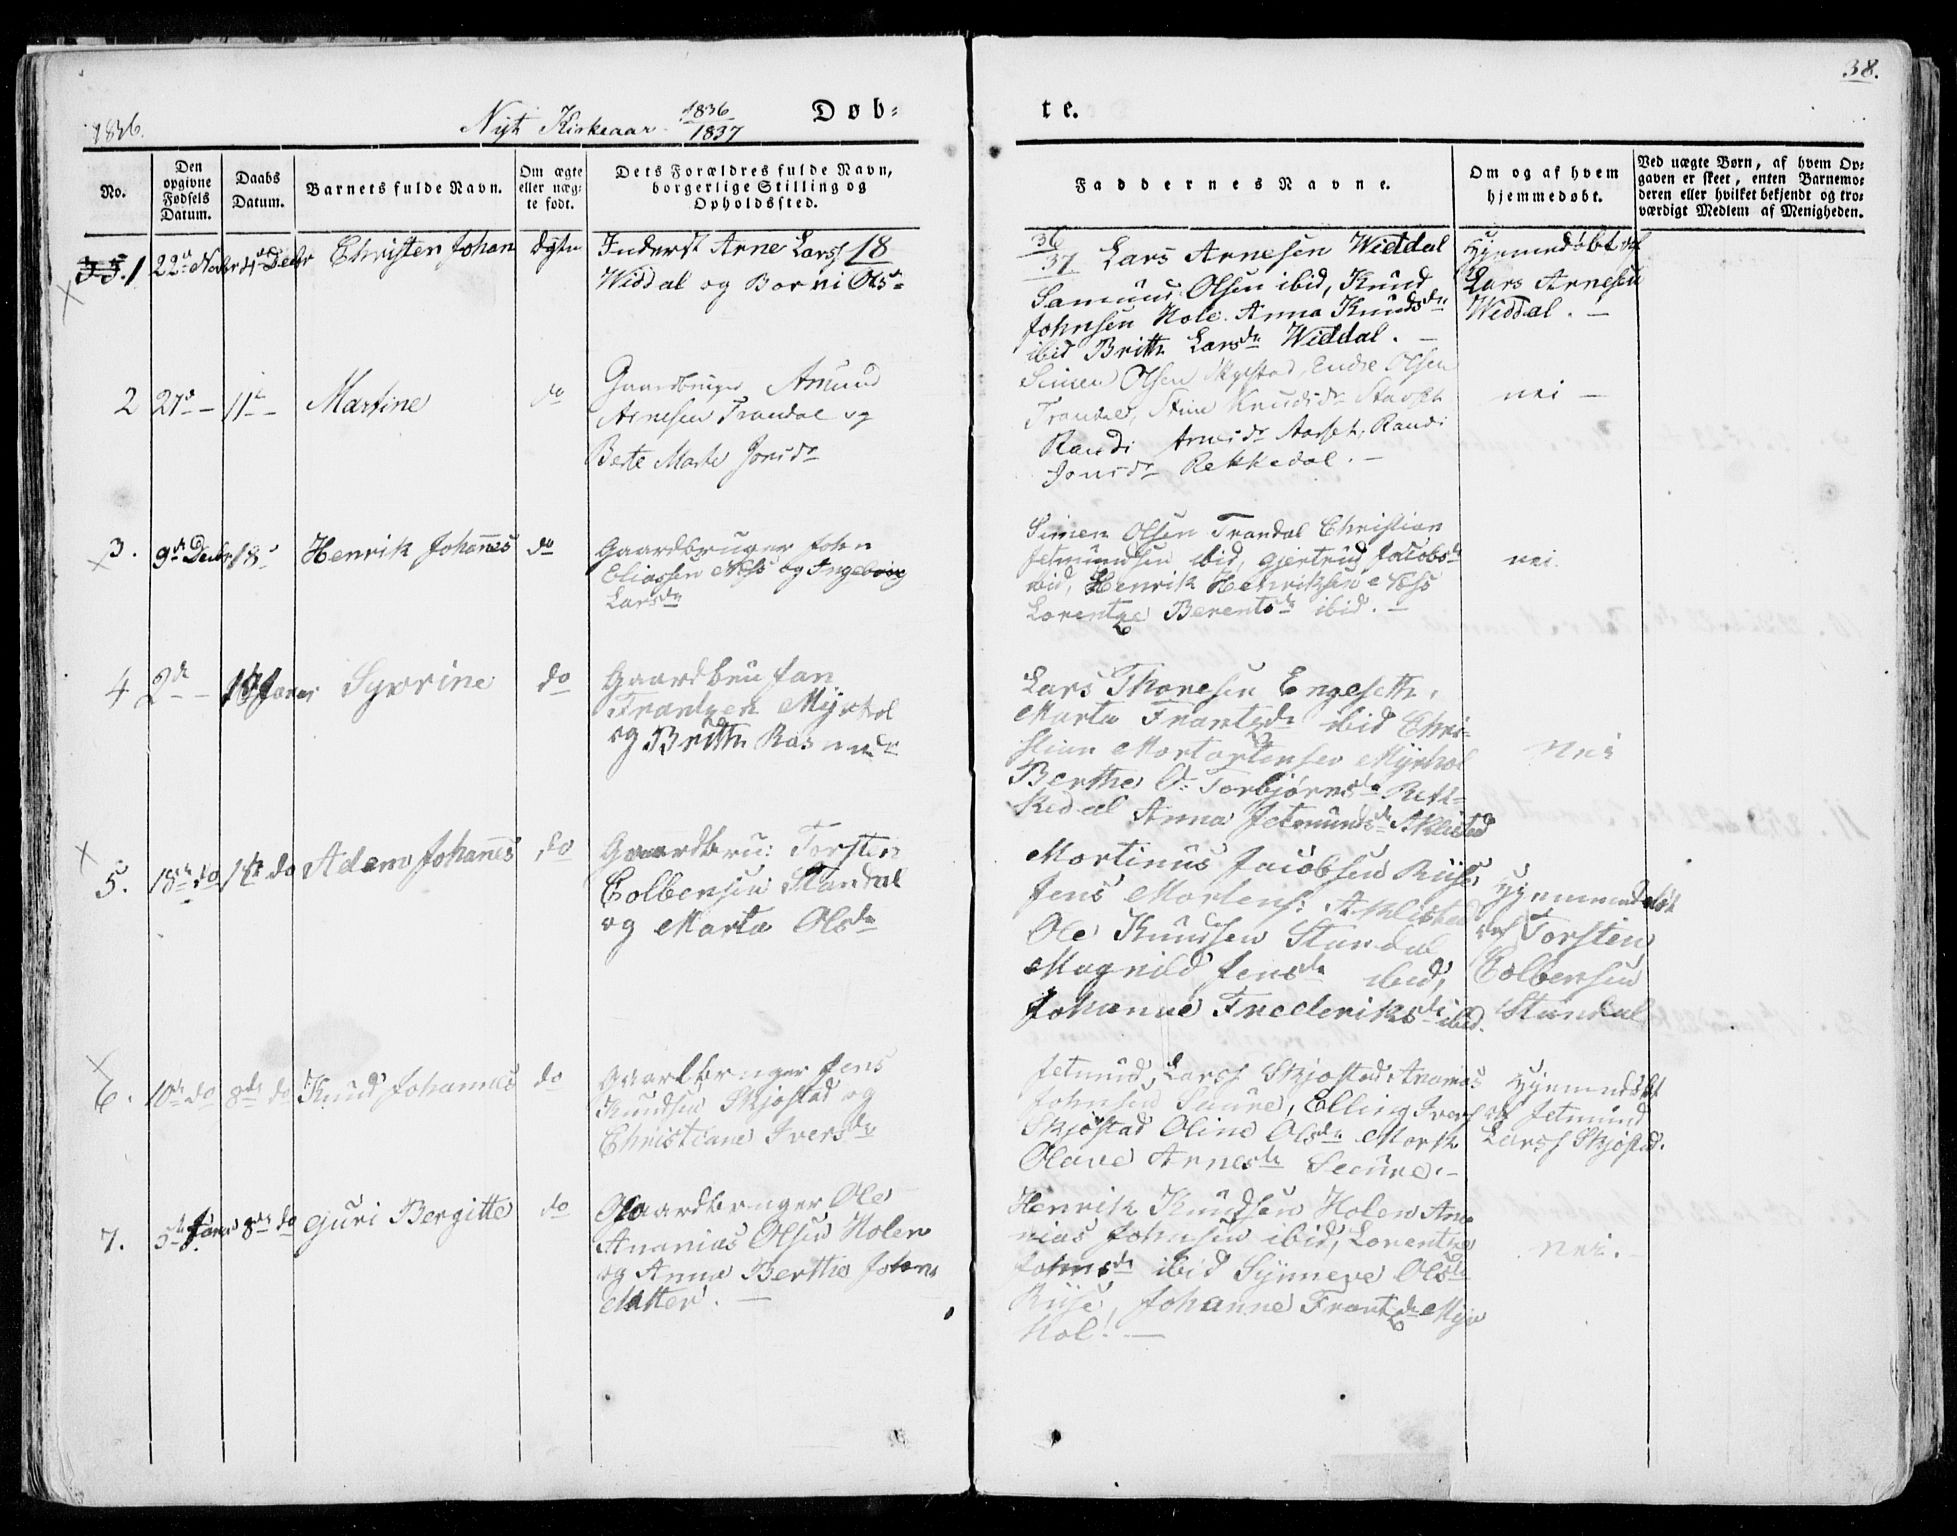 38.
1836.
Nyt Kirkeaar 1836/1837
Døb-
te.
No.
Den opgivne Fødsels Datum.
Daabs Datum.
Barnets fulde Navn.
Om ægte eller uæg-te født.
Dets Forældres fulde Navn, borgerlige Stilling og Opholdssted.
Faddernes Navne.
Om og af hvem hjemmedøbt.
Ved uægte Børn, af hvem Op-gaven er skeet, enten Barnemo-deren eller hvilket bekjendt og tro-værdigt Medlem af Menigheden.
1
22de Novbr 4de Decbr
Christen Johan
Ægte
Inderst Arne Larss
Widdal og Borni Ols
18
36/37 Lars Arnesen Widdal
Samund Olsen ibid, Knud
Johnsen Hole. Anna Knudsdr
ibid Brith Larsdr Widdal. —
Hjemmedøbt af
Lars Arnesen
Widdal. —
2
27de — 11te —
Martine
do
Gaardbruger Amund
Arnesen Trandal og
Bete Marte Jonsdr
Simen Olsen Skjestad, Endre Olsen
Trandal, Stine Knudsdr Stavset
Randi Arnesdr Aarset, Randi
Jonsdr Rekkedal. —
nei —
3.
9de Decbr 18de
Henrik Johannes
do
Gaardbruger John
Eliassen Næss og Ingeborg
Larsdr
Simen Olsen Trandal Christian
Jetmundsen ibid, Gjertrud Jacobsdr
ibid, Henrik Henriksen Næss
Lorentze Berentsdr ibid. —
nei.
4
2de — Janr
Syvrine
do
Gaardbru Jan
Frantzen Myrhol
og Brith Rasmdr
Lars Thoresen Engeseth,
Marta Frantzdr ibid Chri-
stian Mortartensen Myrhol
Berthe O: Torbjørnsdr Rek-
kedal Anna Jetmundsdr Aklistad
nei
5.
18de do 1te do
Adam Johannes
do
Gaardbru: Torsten
Colbensen Standal
og Marta Olsdr
Mortinus Jacobsen Riise
Jens Mortens: Aklistad
Ole Knudsen Standal
Magnild Jensdr ibid,
Johanne Frederiksdr ibid.
Hjemmedøbt
af Torsten
Colbensen
Standal
6.
10de do 8de do
Knud Johannes
do
Gaardbruger Jens
Knudsen Skjøstad og
Christiane Iversdr
Jetmund Larss Skjøstad, Ananias
Johnsen Sæure, Elling Ivers
Skjøstad Oline Olsdr Mork
Olave Arnesdr Sæure. —
Hjemmedøbt
af Jetmund
Larss Skjøstad.
7.
5te Janr 8de do
Guri Bergitte
do
Gaardbruger Ole
Ananias Olsen Holen
og Anna Berthe Johns
datter. —
Henrik Knudsen Holen Ana-
nias Johnsen ibid, Lorentze
Johnsdr ibid Synneve Olsdr
Riise, Johanne Frantzdr Myr
hol. —
nei. —